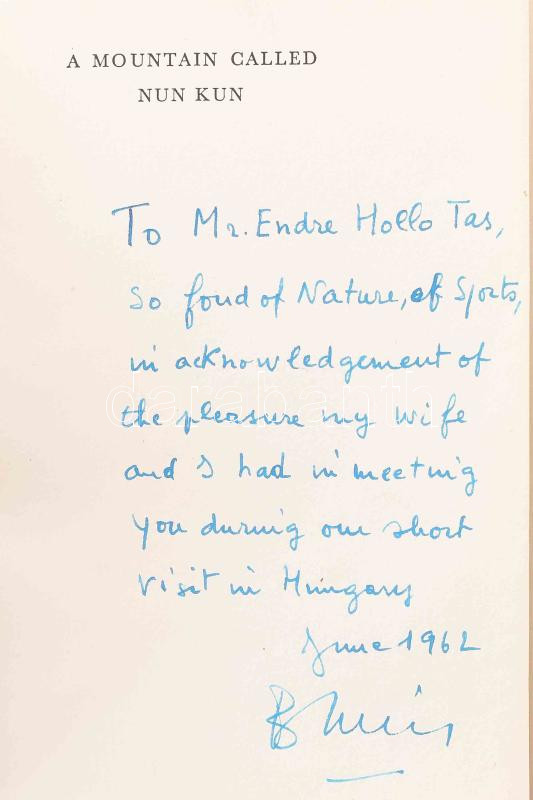 A MOUNTAIN CALLED
NUN KUN
To Mr. Endre Hollo Tas,
So fond of Nature, of Sports,
in acknowledgement of
the pleasure my wife
and I had in meeting
you during our short
visit in Hungary
June 1962